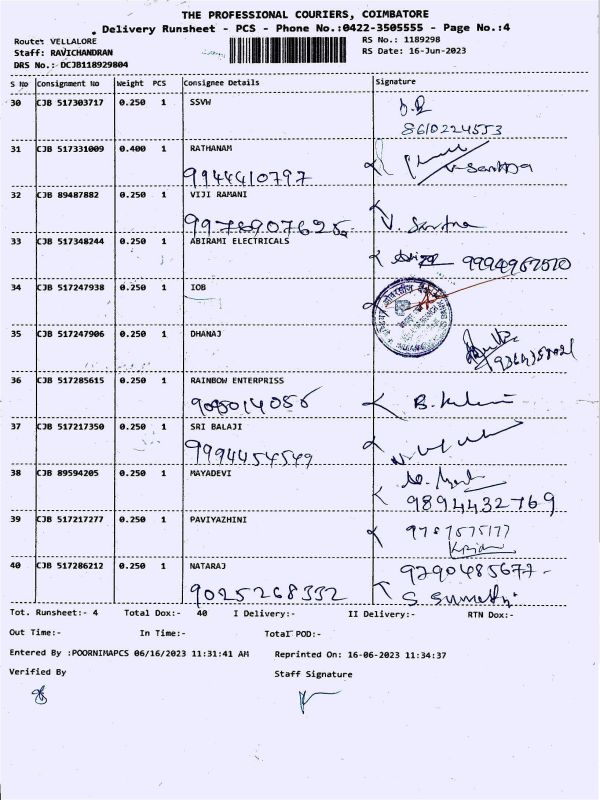 THE PROFESSIONAL COURIERS, COIMBATORE
Delivery Runsheet - PCS - Phone No.:0422-3505555 - Page No.:4
Route: VELLALORE
RS No.: 1189298
Staff: RAVICHANDRAN
RS Date: 16-Jun-2023
DRS No.: DCJB118929804
S No Consignment No Weight PCS Consignee Details Signature
30 CJB 517303717 0.250 1 SSVW
8610224553
31 CJB 517331009 0.400 1 RATHANAM
9944410797
32 CJB 89487882 0.250 1 VIJI RAMANI
33 CJB 517348244 0.250 1 ABIRAMI ELECTRICALS
34 CJB 517247938 1 0.250 1 IOB
35 CJB 517247906 0.250 1 DHANAJ
36 CJB 517285615 0.250 1 RAINBOW ENTERPRISS
37 CJB 517217350 0.250 1 SRI BALAJI
9994454549
38 CJB 89594205 0.250 1 MAYADEVI
9894432769
39 CJB 517217277 0.250 1 PAVIYAZHINI
40 CJB 517286212 0.250 1 NATARAJ
9290485677-
9025268332
Tot. Runsheet:- 4 Total Dox:- 40 I Delivery:- II Delivery:- RTN Dox:-
Out Time:- In Time:- Total POD:-
Entered By :POORNIMAPCS 06/16/2023 11:31:41 AM Reprinted On: 16-06-2023 11:34:37
Verified By Staff Signature